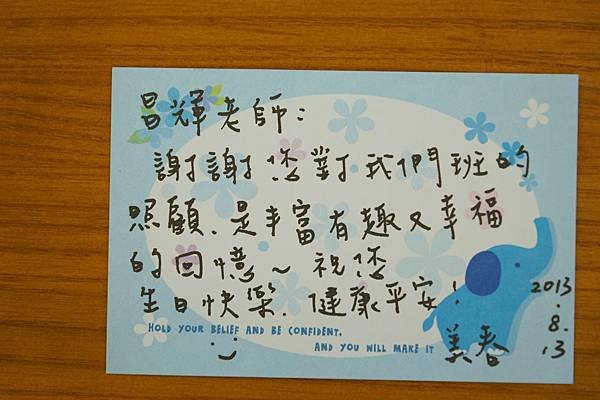 昌輝老師：
謝謝您對我們班的
照顧、是丰富有趣又幸福
的回憶～祝您
生日快樂、健康平安！
HOLD YOUR BELIEF AND BE CONFIDENT.
AND YOU WILL MAKE IT
美春
2013
.8.
13